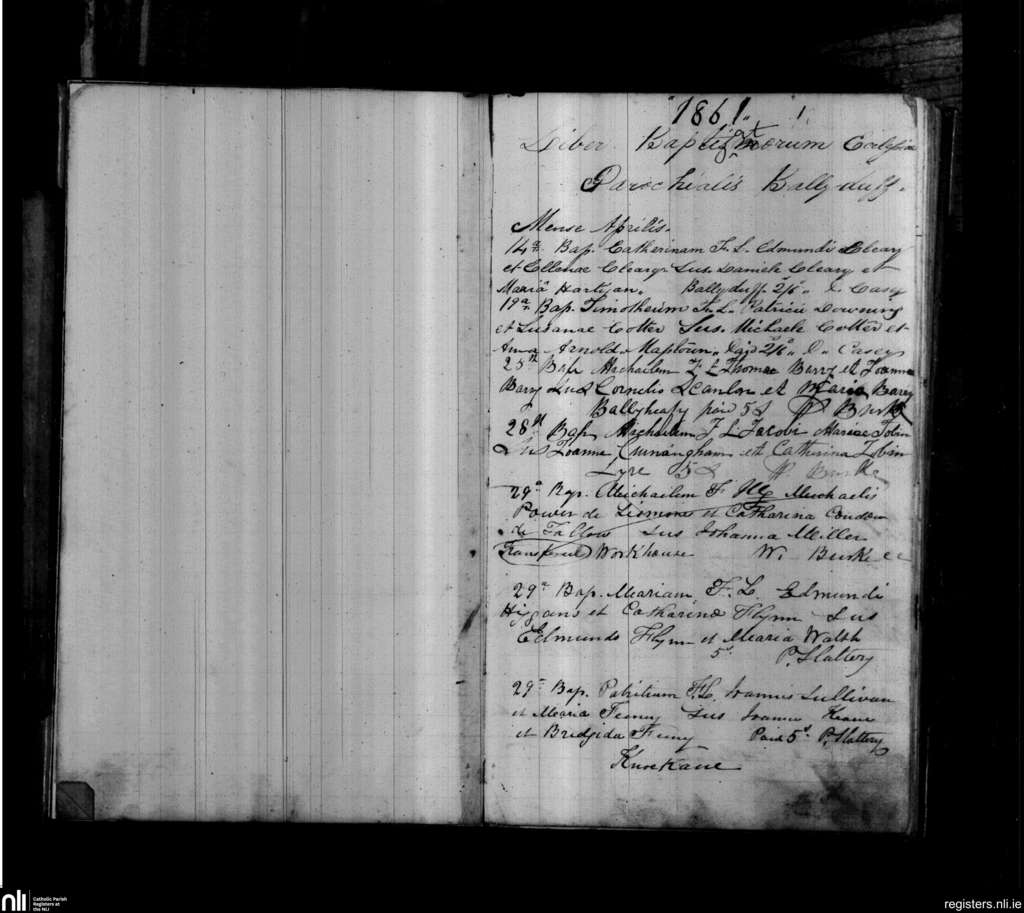 "1861" 1
Liber Baptismatorum
Parochialis Ballyduff.
Mense Aprilis.
14a. Bap. Catherinam F. L. Edmundi Cleary
et Ellenae Cleary. Sus. Daniele Cleary et
Maria Hartgan. Ballyduff. 2/6" D. Casey
19a. Bap. Timotheum F. L. Patricii Downing
et Susanae Cotter Sus. Michaele Cotter et
Anna Arnold. Maptown. 2/6" D. Casey
25th Bap Michailem F L Thomae Barry et Joanna
Barry Sus Cornelio Scanlon et Maria Barry
Ballyheafy paid 5s W Burke
28th Bap Michailem F L Jacobi Mariae Tobin
Sus Joanne Cunningham et Catherina Tobin
Lyre 5s W Burke
29a Bap. Michailem F Michaelis
Power de Lismore et Catharina Condon
de Tallow Sus Johanna Miller
Workhouse W. Burke cc
29a Bap. Meariam F. L. Edmundi
Higgans et Catharina Flynn Sus
Edmundo Flynn et Mearia Walsh
5s P. Slattery
29a Bap. Patritium F. L. Ioannis Sullivan
et Mearia Feeny Sus Ioanne Keane
et Bridgida Feeny Paid 5s P. Slattery
Knockane
nli
Catholic Parish
Registers at
the NLI
registers.nli.ie